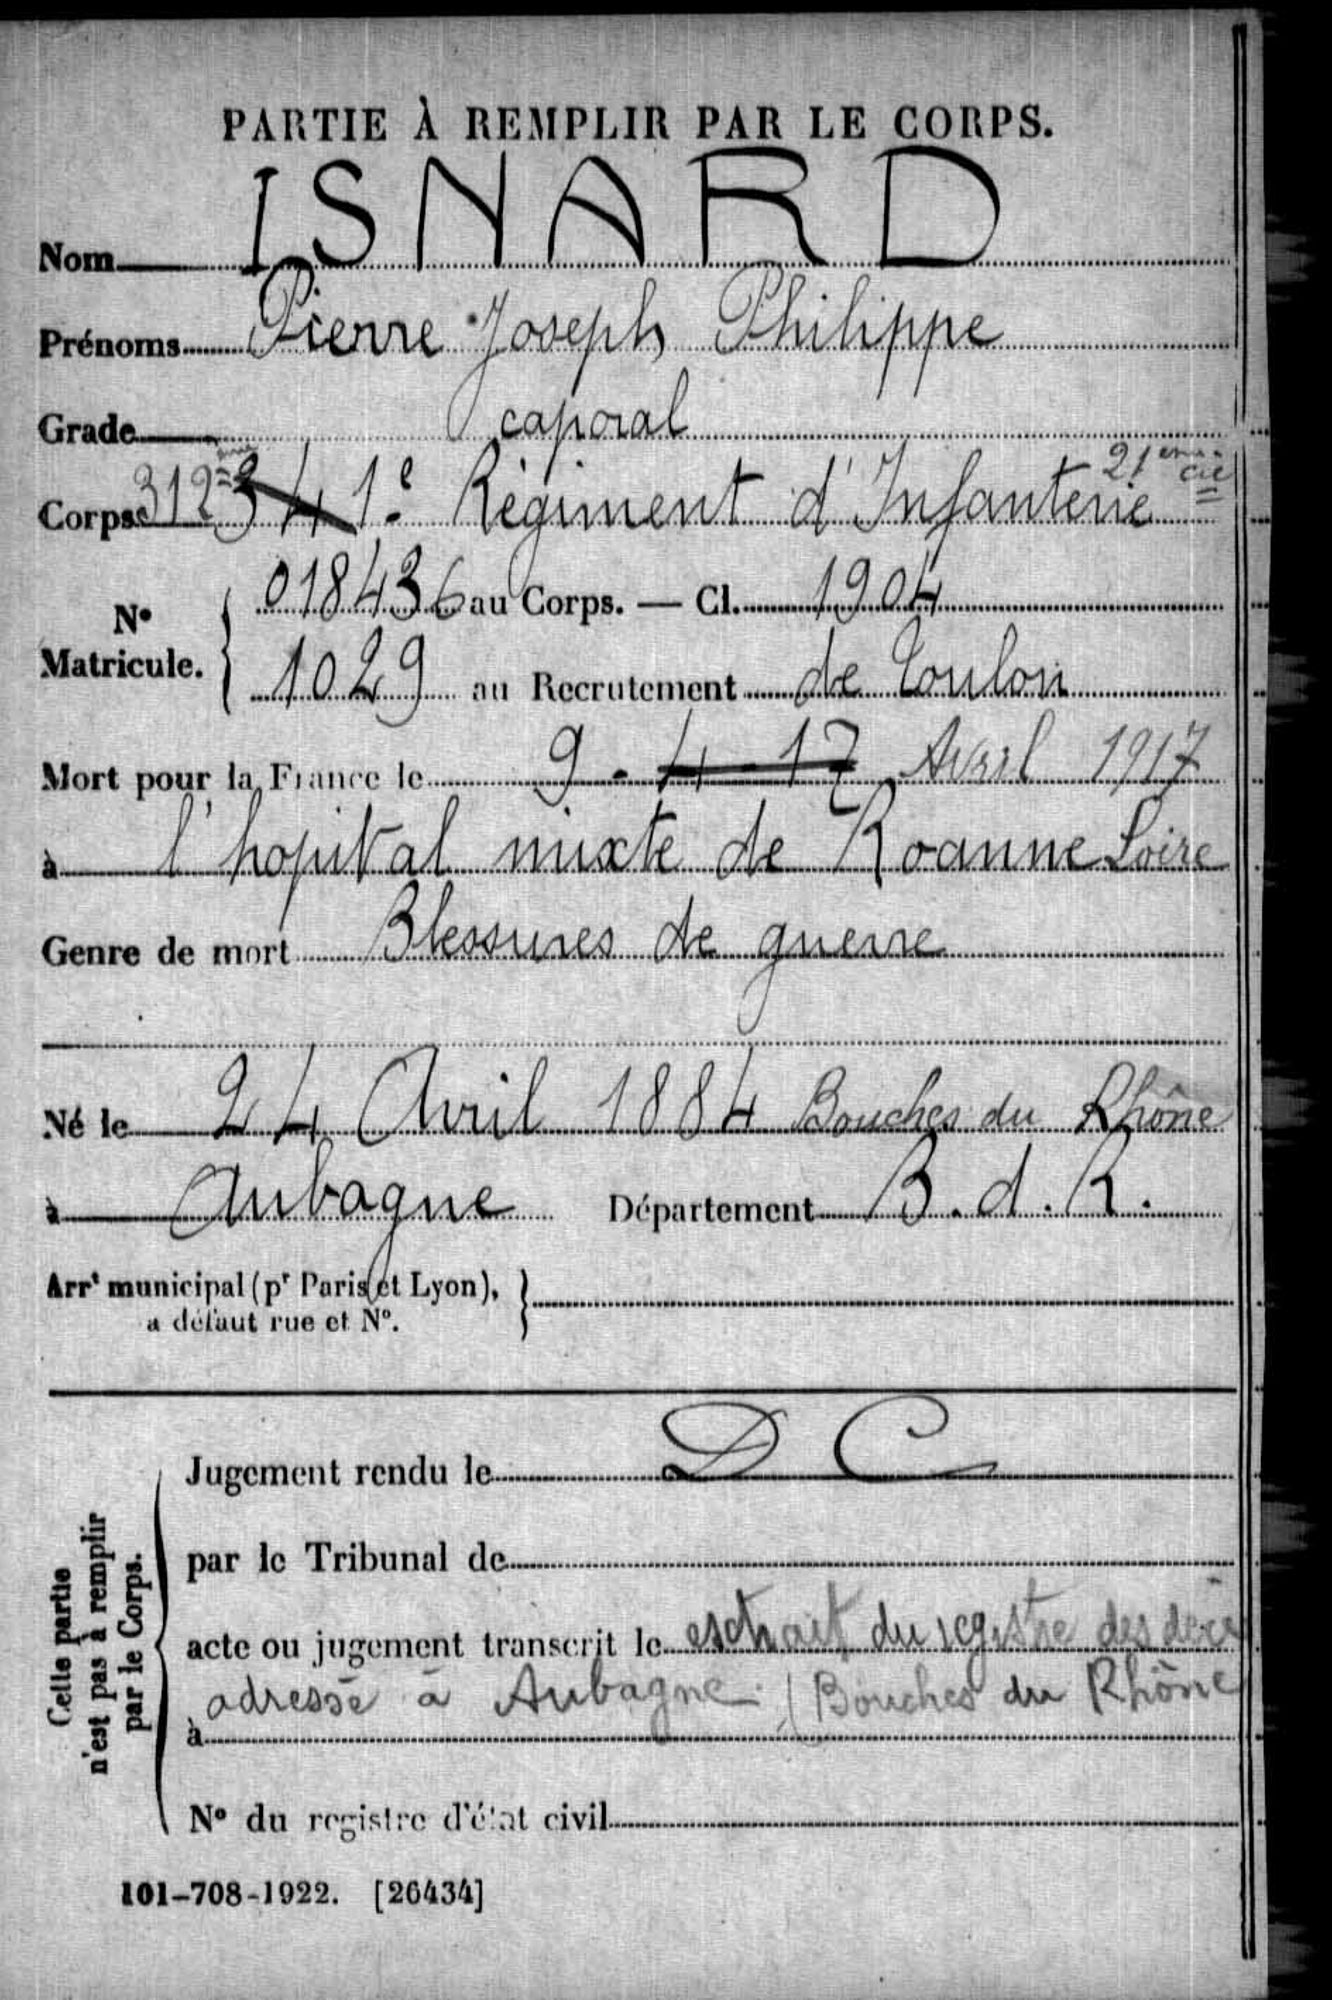 PARTIE À REMPLIR PAR LE CORPS.
Nom ISNARD
Prénoms Pierre Joseph Philippe
Grade caporal
Corps 312ème 341e Régiment d'Infanterie 21eme Cie
No Matricule. { 018436 au Corps. — Cl. 1904
1029 au Recrutement de Toulon
Mort pour la France le 9 - 4 - 17 Avril 1917
à l'hopital mixte de Roanne Loire
Genre de mort Blessures de guerre
Né le 24 Avril 1884 Bouches du Rhône
à Aubagne Département B.d.R.
Arrt municipal (pr Paris et Lyon), }
a défaut rue et No.
Cette partie
n'est pas à remplir
par le Corps.
Jugement rendu le D C
par le Tribunal de
acte ou jugement transcrit le extrait du registre des décè
adressé à Aubagne (Bouches du Rhône
à
No du registre d'état civil
101-708-1922. [26434]